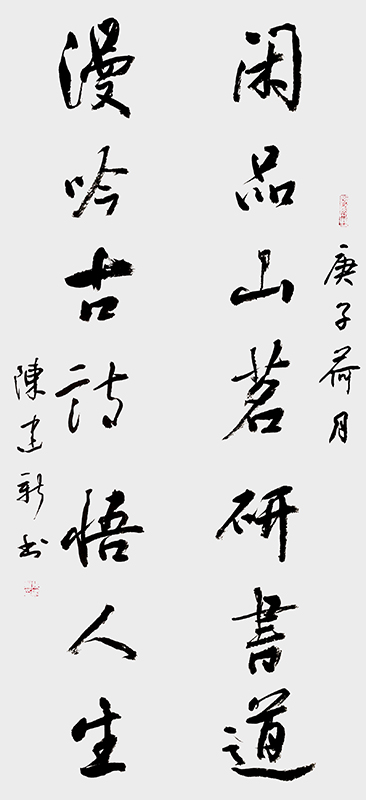 庚子荷月
闲品山茗研書道
漫吟古詩悟人生
陳建新书